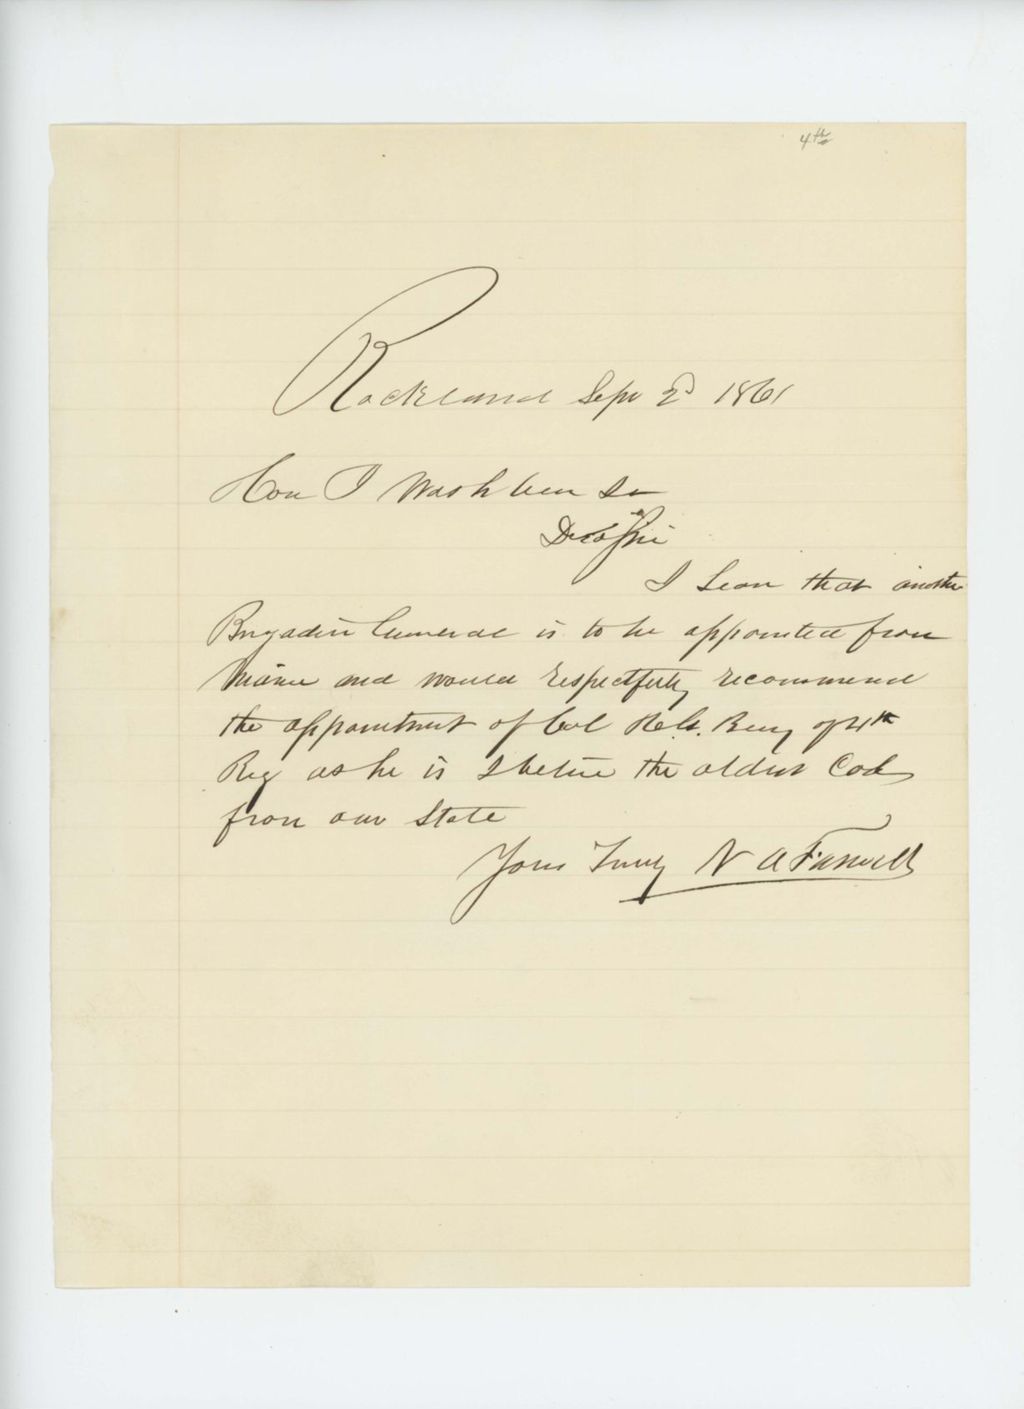 4th
Rockland Sept 2d 1861
Hon I Washburn Jr
Dear Sir
I Learn that another
Brigadier General is to be appointed from
Maine and would respectfully recommend
the appointment of Col H. G. Berry of 4th
Reg as he is I believe the oldest Col
from our State
Yours Truly N A Farwell